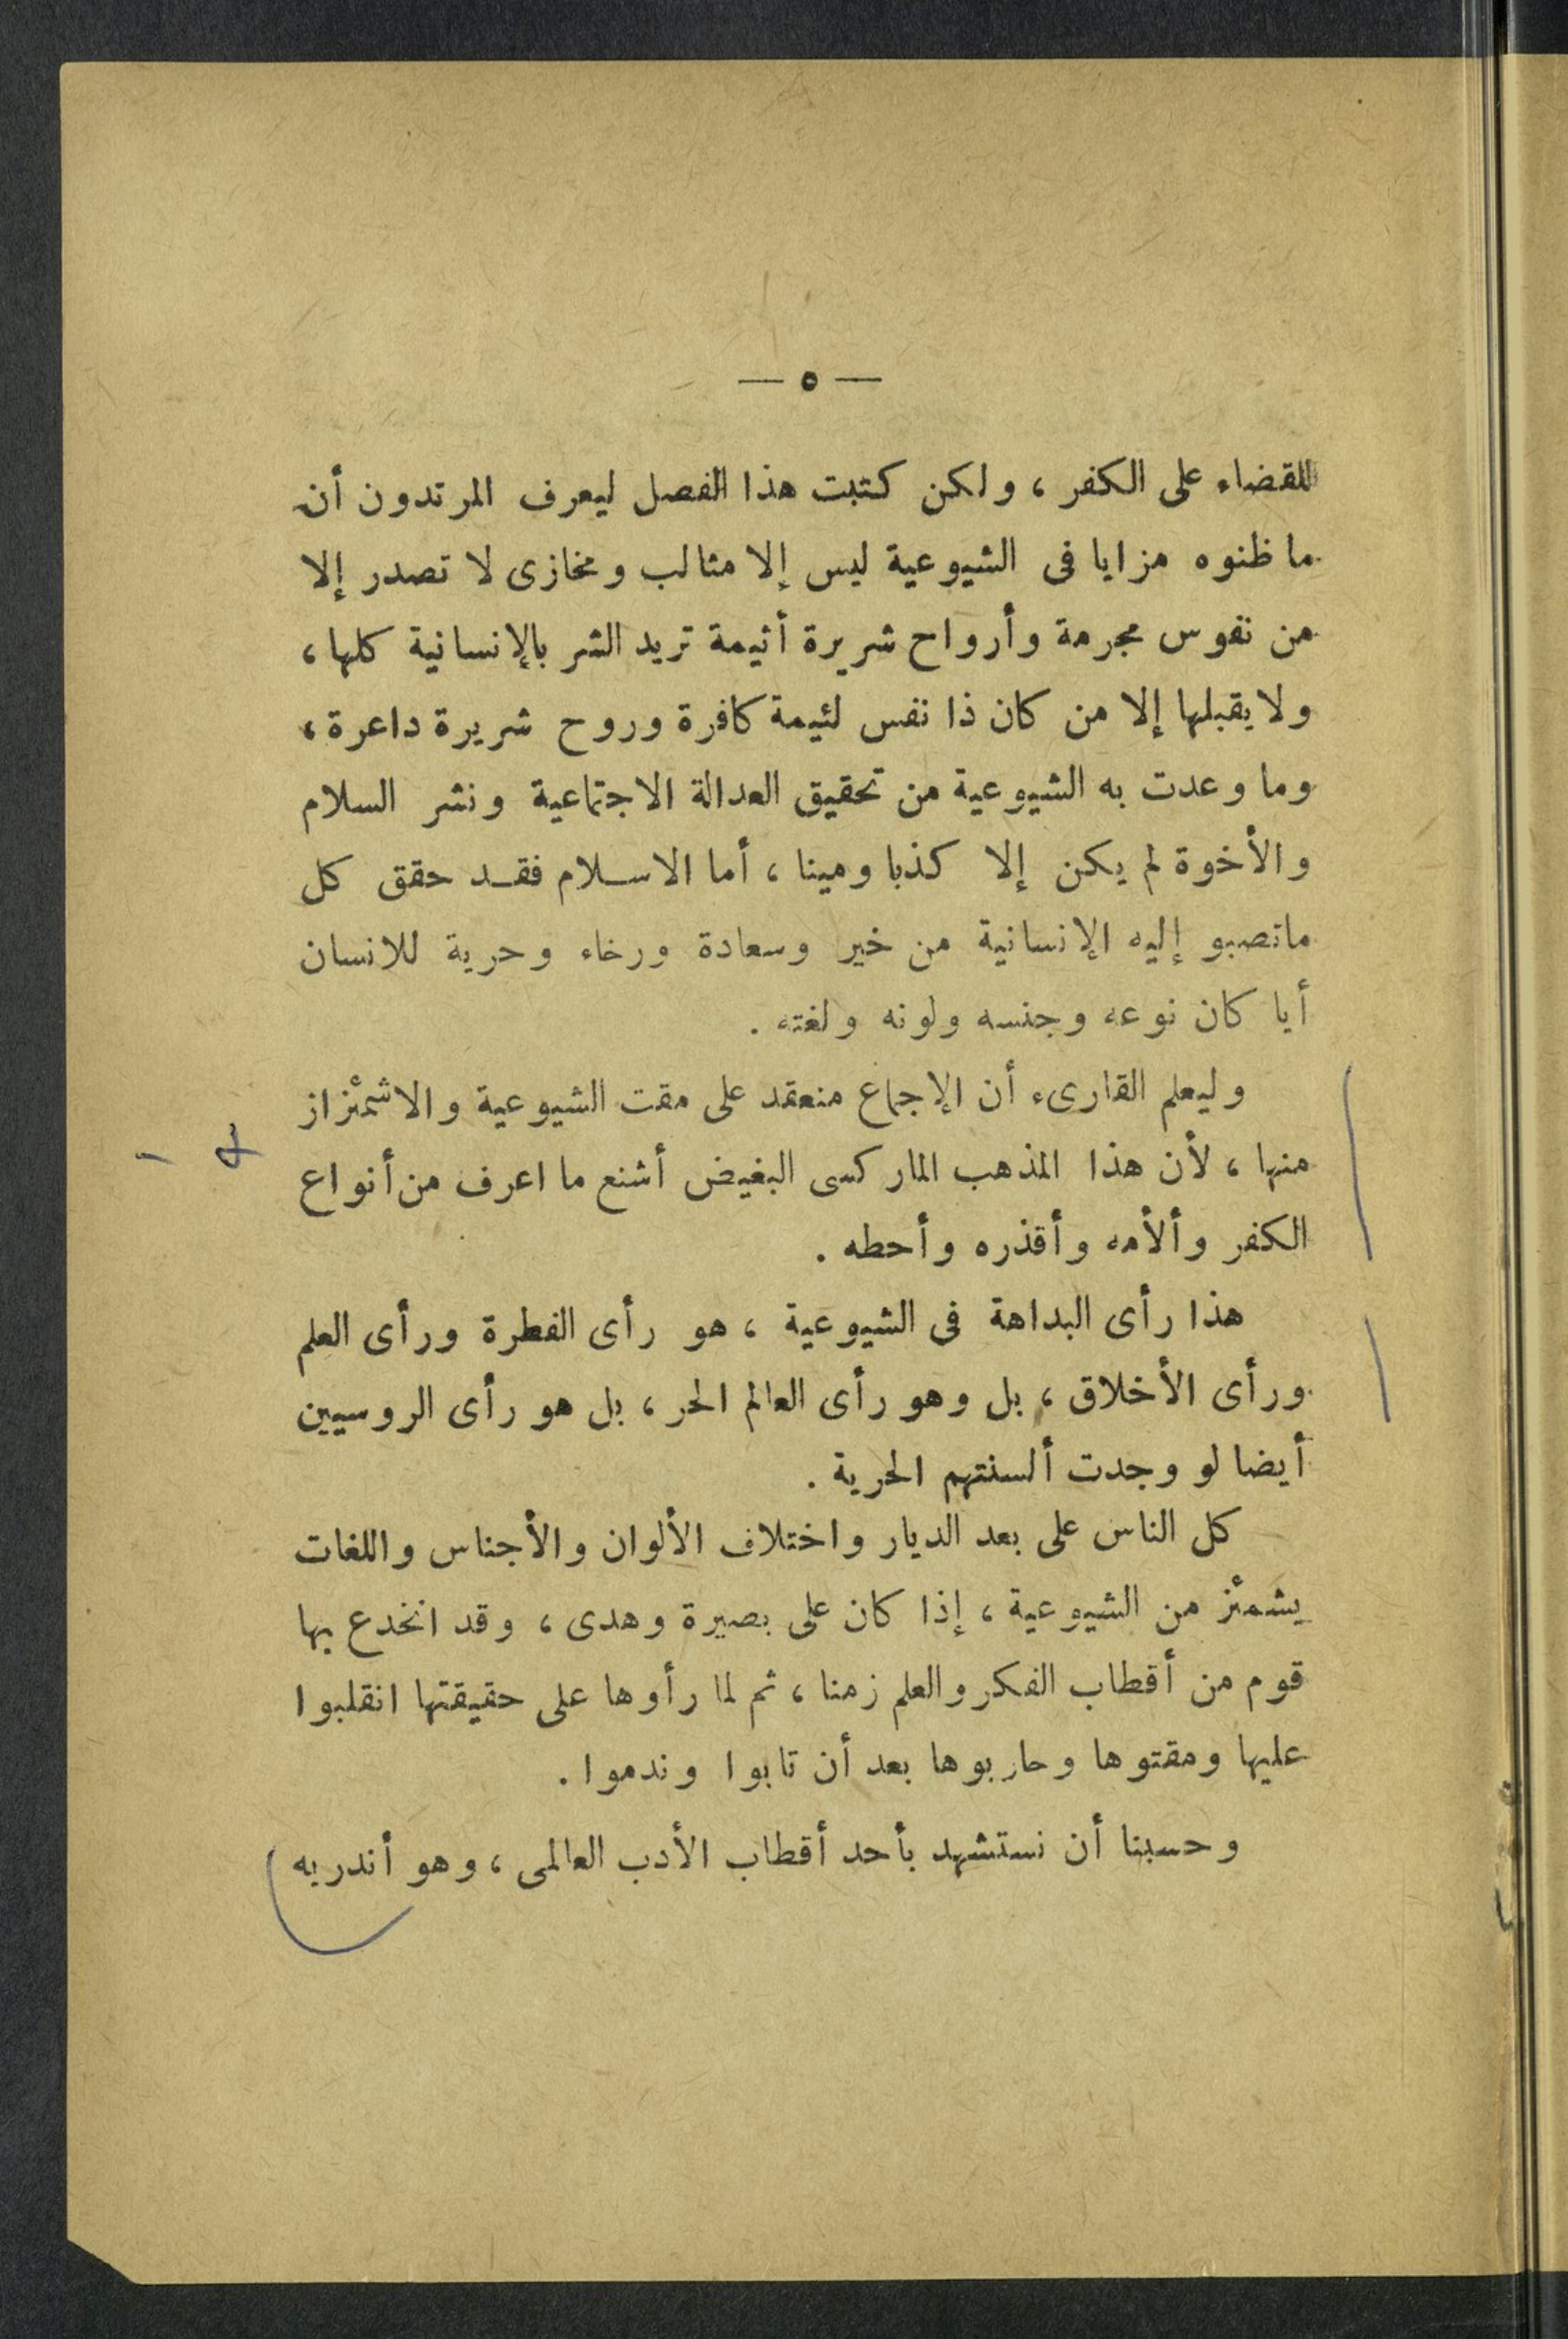 — ٥ —
للقضاء على الكفر ، ولكن كتبت هذا الفصل ليعرف المرتدون أن
ما ظنوه مزايا فى الشيوعية ليس إلا مثالب ومخازى لا تصدر إلا
من نفوس مجرمة وأرواح شريرة أثيمة تريد الشر بالإنسانية كلها ،
ولا يقبلها إلا من كان ذا نفس لئيمة كافرة وروح شريرة داعرة ،
وما وعدت به الشيوعية من تحقيق العدالة الاجتماعية ونشر السلام
والأخوة لم يكن إلا كذبا ومينا ، أما الاسلام فقد حقق كل
ماتصبو إليه الإنسانية من خير وسعادة ورخاء وحرية للانسان
أيا كان نوعه وجنسه ولونه ولغته .
وليعلم القارىء أن الإجماع منعقد على مقت الشيوعية والاشمئزاز
منها ، لأن هذا المذهب الماركسى البغيض أشنع ما اعرف من أنواع
الكفر وألأمه وأقذره وأحطه .
هذا رأى البداهة فى الشيوعية ، هو رأى الفطرة ورأى العلم
ورأى الأخلاق ، بل وهو رأى العالم الحر ، بل هو رأى الروسيين
أيضا لو وجدت ألسنتهم الحرية .
كل الناس على بعد الديار واختلاف الألوان والأجناس واللغات
يشمئز من الشيوعية ، إذا كان على بصيرة وهدى ، وقد انخدع بها
قوم من أقطاب الفكر والعلم زمنا ، ثم لما رأوها على حقيقتها انقلبوا
عليها ومقتوها وحاربوها بعد أن تابوا وندموا .
وحسبنا أن نستشهد بأحد أقطاب الأدب العالمى ، وهو أندريه